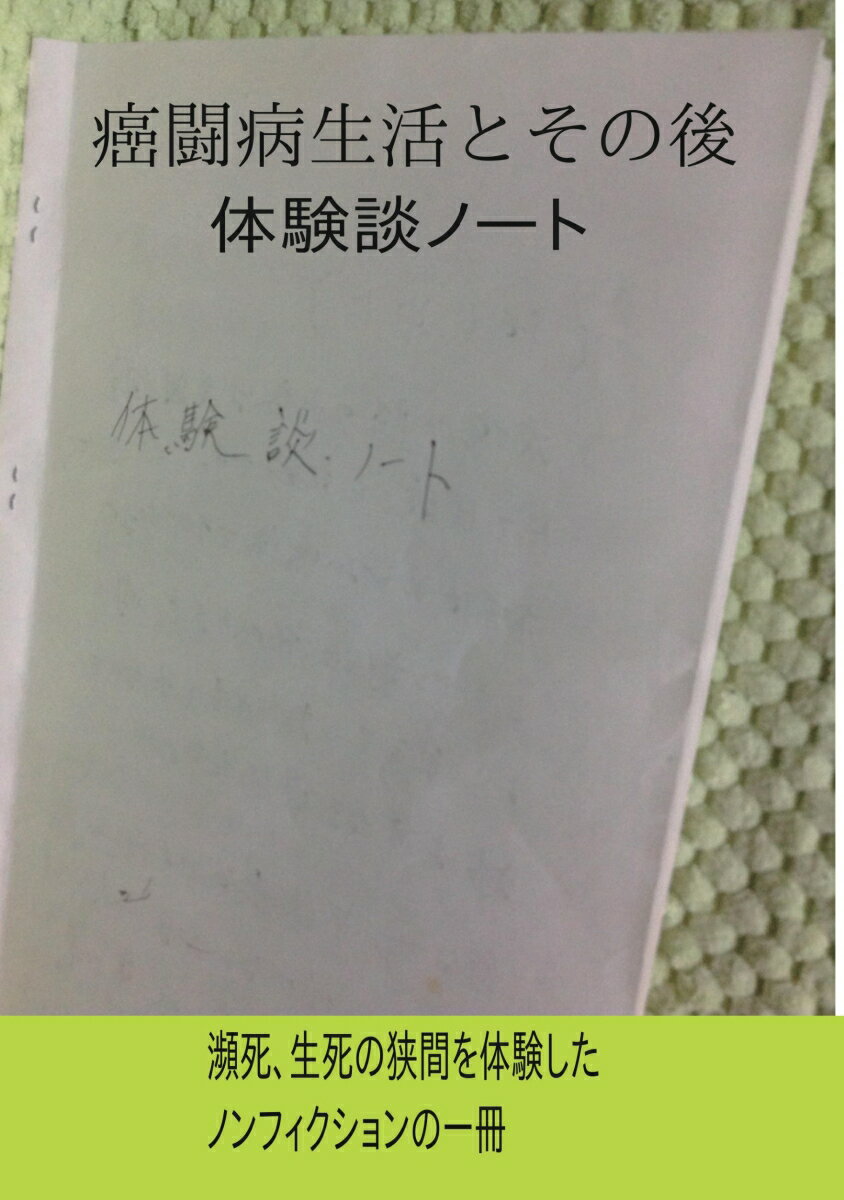 癌闘病生活とその後
体験談ノート
体験談ノート
瀕死、生死の狭間を体験した
ノンフィクションの一冊